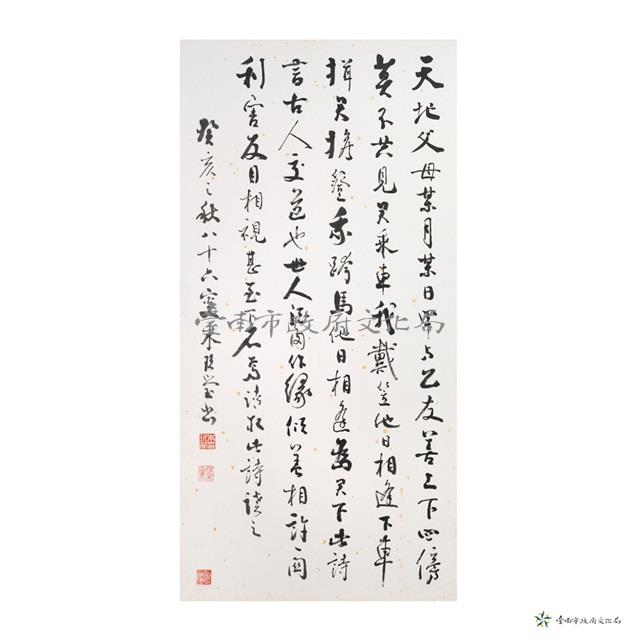 天地父母某月某日單与乙友善上下四傍
莫不共見君乘車我戴笠他日相逢下車
揖君擔簦我跨馬他日相逢為君下此詩
言古人交道也世人酒肉作緣傾蓋相許
利害反目相視甚至
詩取此詩讀之
癸亥之秋八十六叟
書
臺南市政府文化局
臺南市政府文化局